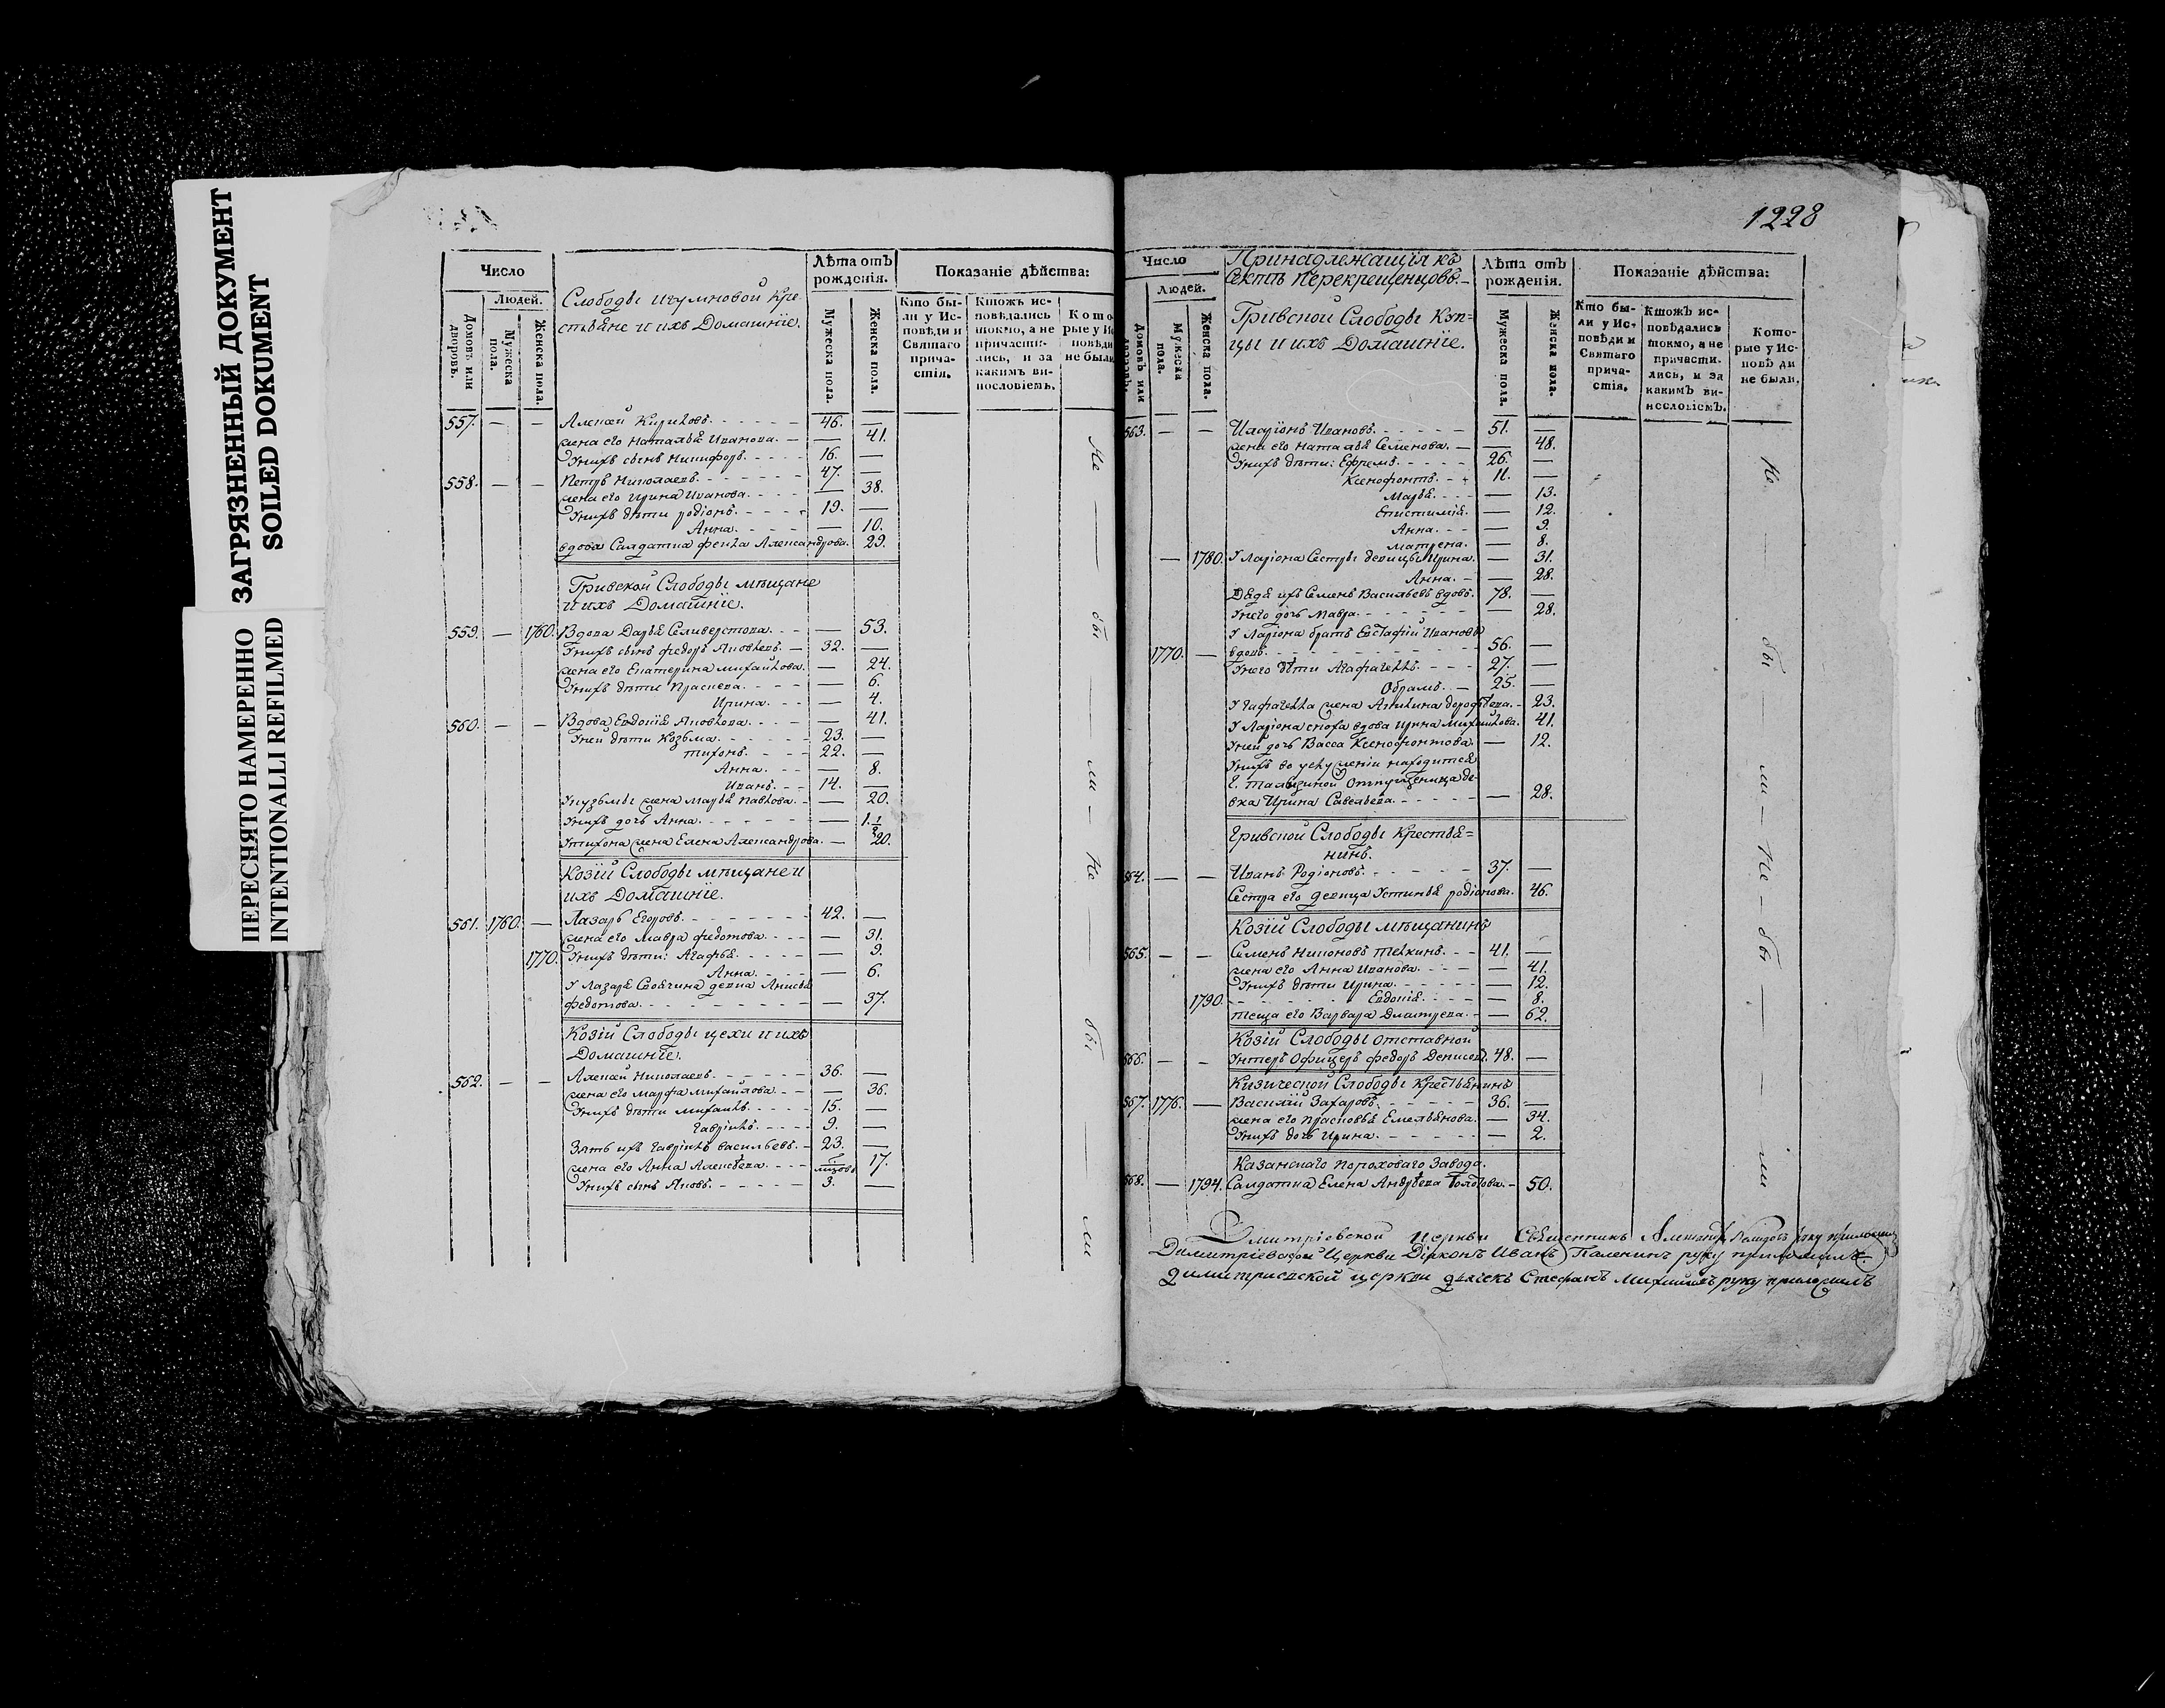 ЗАГРЯЗНЕННЫЙ ДОКУМЕНТ
SOILED DOKUMENT
ПЕРЕСНЯТО НАМЕРЕННО
INTENTIONALLI REFILMED
Число
Людей.
Домовъ или дворовъ.
Мужеска пола.
Женска пола.
Слободы игумновой Кре
стьяне и ихъ Домашніе.
Лѣта отъ рожденія.
Мужеска пола.
Женска пола.
Показаніе дѣйства:
Кто бы-
ли у Ис-
повѣди и
Святаго
прича-
стія.
Ктожъ ис-
повѣдались
токмо, а не
причасти-
лись, и за
какимъ ви-
нословіемъ.
Кото
рые у Ис
повѣди
не были
557. — — Алексѣй Кириловъ. 46. —
жена его Наталья Иванова. — 41.
У нихъ сынъ Никифоръ. 16. —
558. — — Петръ Николаевъ. 47. —
жена его Ирина Иванова. — 38.
У нихъ дѣти родіонъ. 19. —
Анна. — 10.
вдова Салдатка Александрова. 29.
Гривской Слободы мѣщане
и ихъ Домашніе.
559. — 1760. Вдова Дарья Селиверстова. — 53.
У нихъ сынъ федоръ Яковлевъ. 32. —
жена его Екатерина михайлова. — 24.
У нихъ дѣти Праскева. — 6.
Ирина. — 4.
560. — — Вдова Евдокія Яковлева. — 41.
У ней дѣти Козьма. 23. —
тихонъ. 22. —
Анна. — 8.
Иванъ. 14. —
У кузьмы жена марья Павлова. — 20.
У нихъ дочь Анна. — 1 1/2
У тихона жена Елена Александрова. — 20.
Козій Слободы мѣщане и
ихъ Домашніе.
561. 1760. — Лазарь Егоровъ. 42. —
жена его Мавра федотова. — 31.
1770. У нихъ дѣти: Агафья. — 9.
Анна. — 6.
У Лазаря Своячина девка Анисья
федотова. — 37.
Козій Слободы цехи и ихъ
Домашніе.
562. — — Алексѣй Николаевъ. 36. —
жена его Марфа михайлова. — 36.
У нихъ дѣти михаилъ. 15. —
гаврилъ. 9. —
Зять ихъ гаврилъ васильевъ. 23. —
жена его Анна Алексѣева. 17.
У нихъ сынъ Яковъ. 3. —
Не бы ли Не бы ли
1228
Число
Людей.
Домовъ или дворовъ.
Мужеска пола.
Женска пола.
Принадлежащія къ
Сектѣ Перекрещенцовъ.
Гривской Слободы Куп=
цы и ихъ Домашніе.
Лѣта отъ рожденія.
Мужеска пола.
Женска пола.
Показаніе дѣйства:
Кто бы-
ли у Ис-
повѣди и
Святаго
прича-
стія.
Ктожъ ис-
повѣдались
токмо, а не
причасти-
лись, и за
какимъ ви-
нословіемъ.
Кото-
рые у Ис-
повѣ ди
не были.
563. — — Иларіонъ Ивановъ. 51. —
жена его Наталья Семенова. — 48.
У нихъ дѣти: Ефремъ. 26. —
Ксенофонтъ. 11. —
Марья. — 13.
Епистимія. — 12.
Анна. — 9.
Матрена. — 8.
— 1780. У Ларіона Сестры девицы Ирина. — 31.
Анна. — 28.
Дядя ихъ Семенъ Васильевъ вдовъ. 78. —
У него дочь Мавра. — 28.
У Ларіона братъ Евстафій Ивановъ
1770. — вдовъ. 56. —
У него дѣти Агафагелъ. 27. —
Обрамъ. 25. —
У гафагела жена Акилина дорофѣева. 23.
У Ларіона сноха вдова Ирина Михайлова. 41.
У ней дочь Васса Ксенофонтова. — 12.
У нихъ во услуженіи находится
г. отпущеница де-
вка Ирина Савельева. — 28.
Гривской Слободы Крестья=
нинъ.
564. — — Иванъ Родіоновъ. 37. —
Сестра его девица Устинья родіонова. 46.
Козій Слободы мѣщанинъ
565. — — Семенъ Никоновъ Телкинъ. 41. —
жена его Анна Иванова. — 41.
У нихъ дѣти Ирина. — 12.
1790. Евдокія. — 8.
теща его Варвара Дмитрева. — 62.
Козій Слободы отставной
566. — — Унтеръ Офицеръ федоръ Денисовъ. 48. —
Кизической Слободы Крестьянинъ
567. 1776. — Василій Захаровъ. 36. —
жена его Прасковья Емельянова. — 34.
У нихъ дочь Ирина. — 2.
Казанскаго Пороховаго Завода.
568. — 1794. Салдатка Елена Андрѣева — 50.
Не бы ли Не бы ли
Дмитріевской Церкви Священникъ Александръ руку приложилъ
Димитріевской Церкви Діяконъ Иванъ руку приложилъ
Димитриевской церкви дьячекъ Стефанъ Михайловъ руку приложилъ